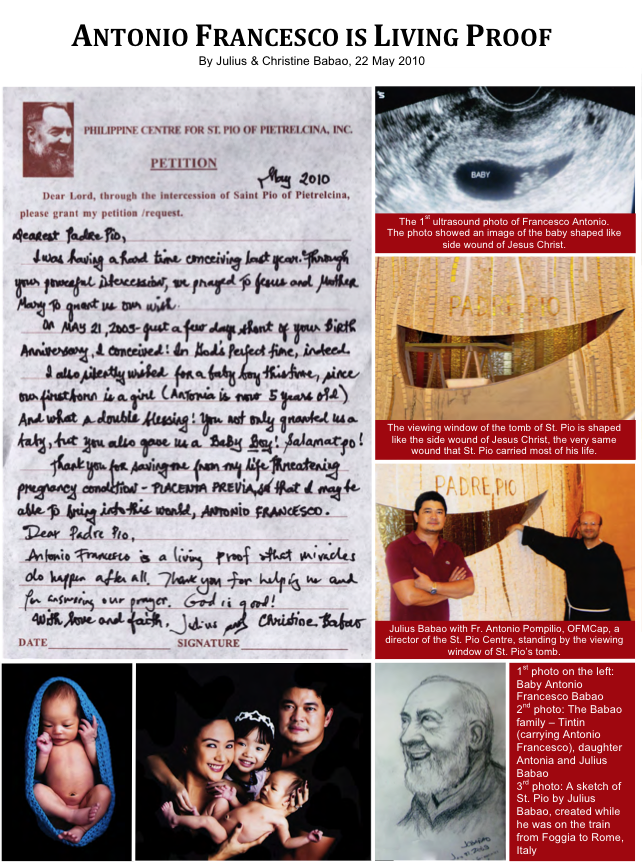 ANTONIO FRANCESCO IS LIVING PROOF
By Julius & Christine Babao, 22 May 2010
PHILIPPINE CENTRE FOR ST. PIO OF PIETRELCINA, INC.
PETITION
May 2010
Dear Lord, through the intercession of Saint Pio of Pietrelcina,
please grant my petition /request.
Dearest Padre Pio,
I was having a hard time conceiving last year. Through
your powerful intercession, we prayed to Jesus and Mother
Mary to grant us our wish.
On MAY 21, 2009- just a few days short of your Birth
Anniversary, I conceived! In God's Perfect time, indeed.
I also silently wished for a baby boy this time, since
our firstborn is a girl (Antonia is now 5 years old)
And what a double blessing! You not only granted us a
baby, but you also gave us a Baby Boy! Salamat po!
Thank you for saving me from my life threatening
pregnancy condition - PLACENTA PREVIA, so that I may be
able to bring into this world, ANTONIO FRANCESCO.
Dear Padre Pio,
Antonio Francesco is a living proof that miracles
do happen after all. Thank you for helping us and
for answering our prayer. God is good!
With love and faith, Julius and Christine Babao
DATE SIGNATURE
BABY
The 1st ultrasound photo of Francesco Antonio.
The photo showed an image of the baby shaped like
side wound of Jesus Christ.
PADRE PIO
The viewing window of the tomb of St. Pio is shaped
like the side wound of Jesus Christ, the very same
wound that St. Pio carried most of his life.
PADRE PIO
Julius Babao with Fr. Antonio Pompilio, OFMCap, a
director of the St. Pio Centre, standing by the viewing
window of St. Pio's tomb.
J. BABAO
1st photo on the left:
Baby Antonio
Francesco Babao
2nd photo: The Babao
family – Tintin
(carrying Antonio
Francesco), daughter
Antonia and Julius
Babao
3rd photo: A sketch of
St. Pio by Julius
Babao, created while
he was on the train
from Foggia to Rome,
Italy